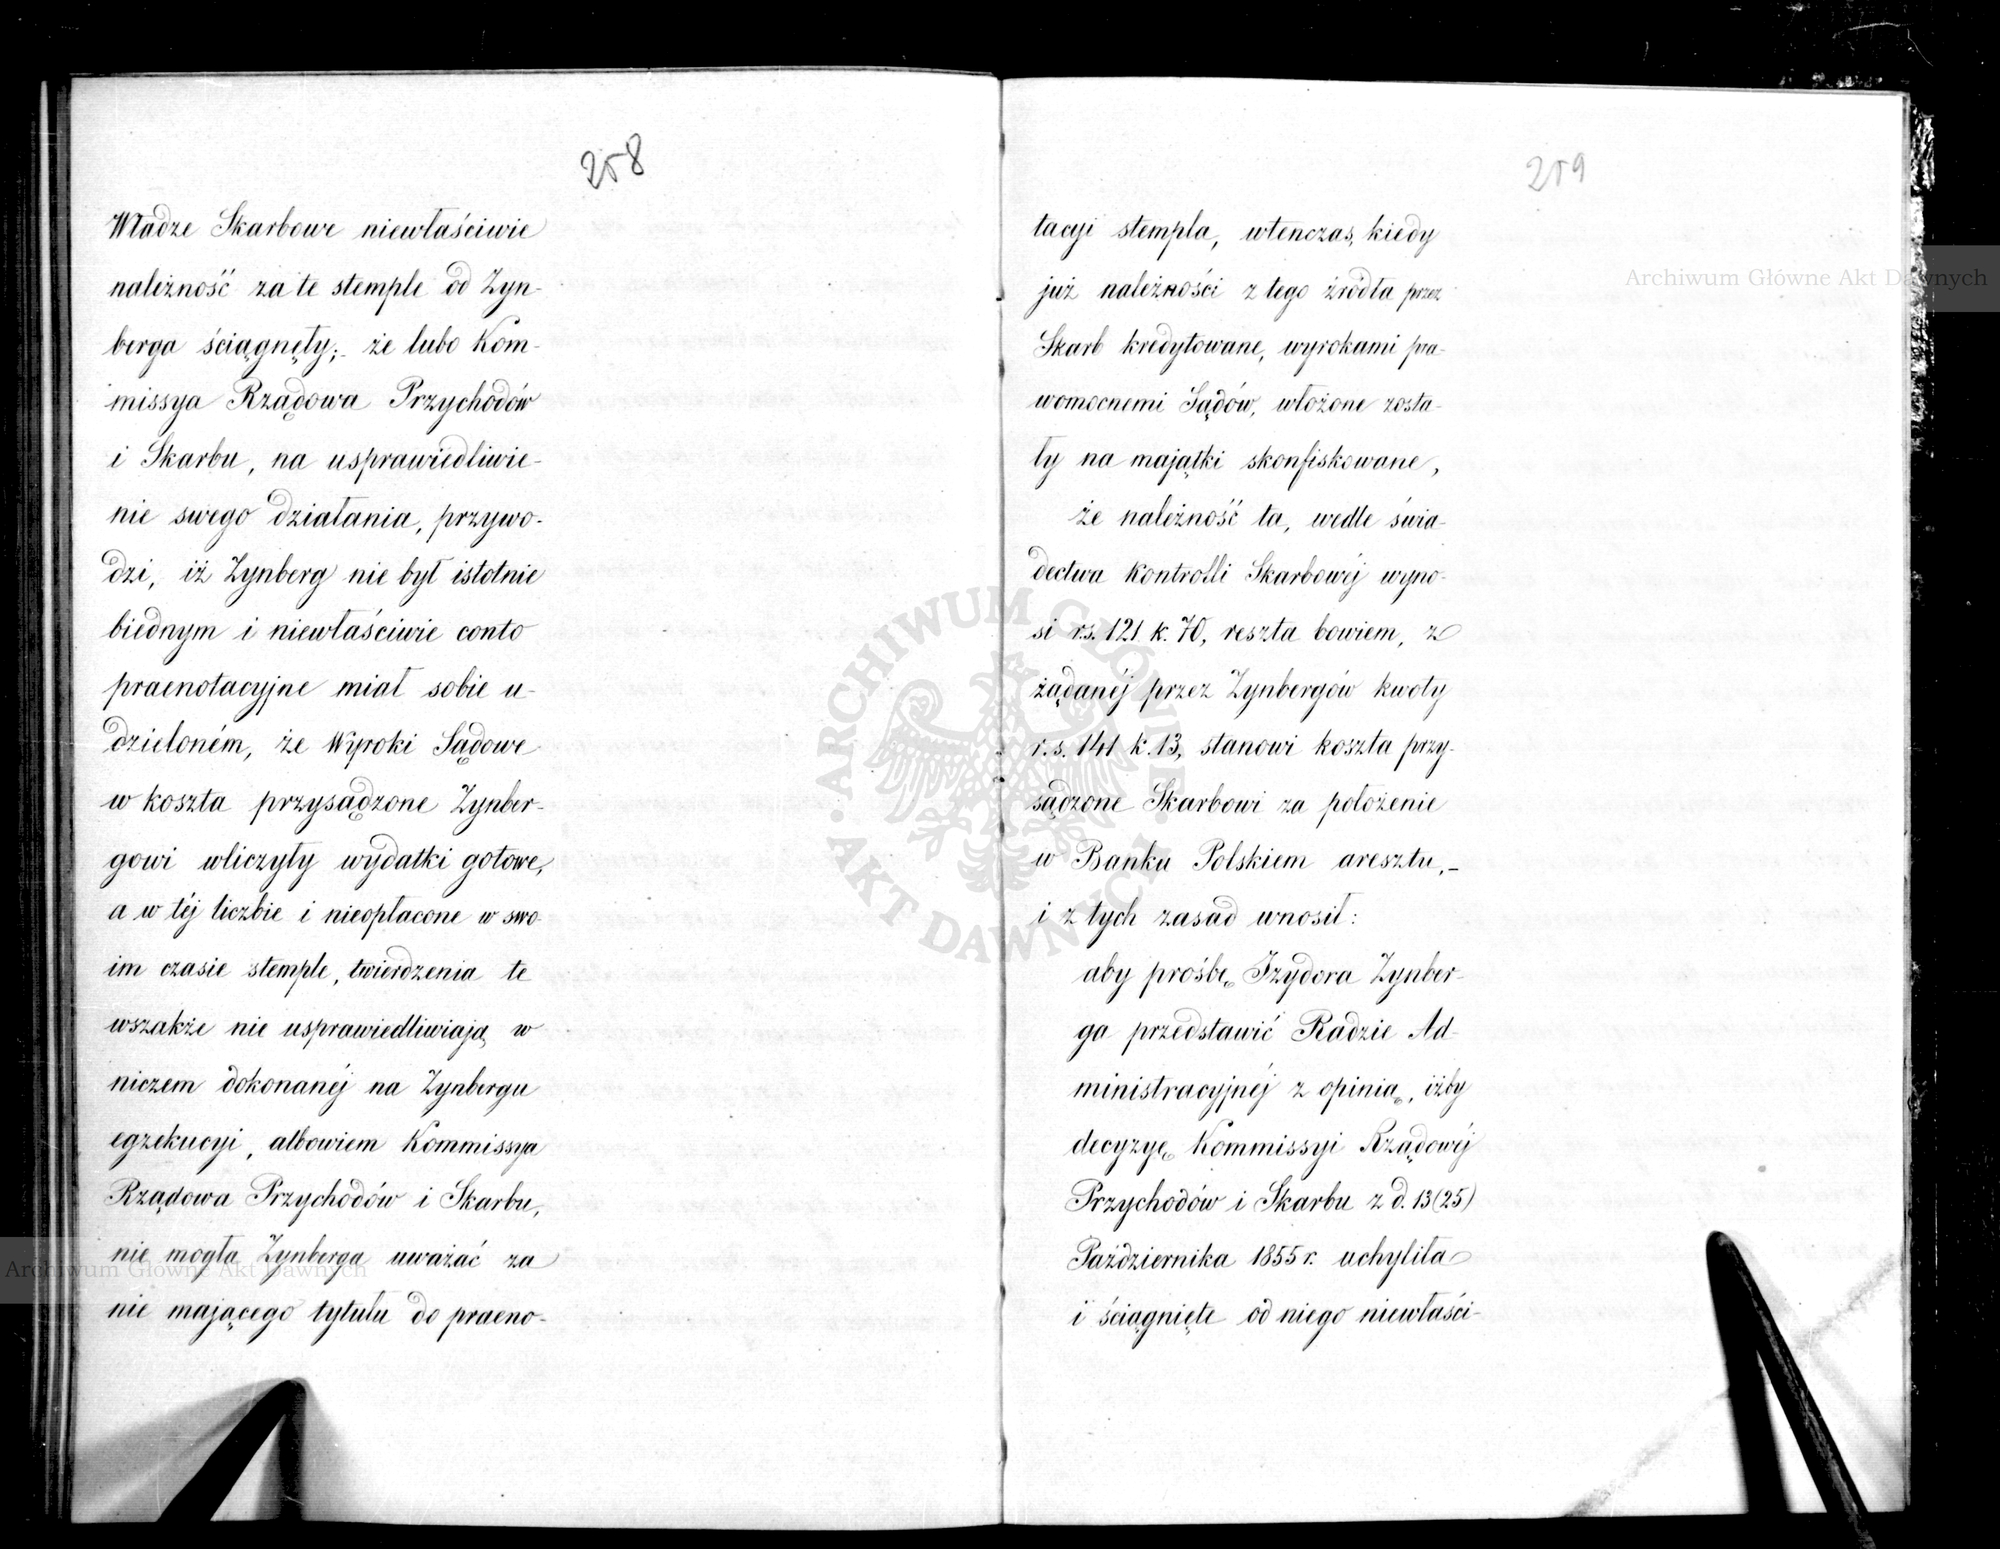 258
Władze Skarbowe niewłaściwie
należność za te stemple od Zyn-
berga ściągnęły; że lubo Kom-
missya Rządowa Przychodów
i Skarbu, na usprawiedliwie-
nie swego działania, przywo-
dzi, iż Zynberg nie był istotnie
biednym i niewłaściwie conto
praenotacyjne miał sobie u-
dzieloném, że Wyroki Sądowe
w koszta przysądzone Zynber-
gowi wliczyły wydatki gotowe,
a w téj liczbie i nieopłacone w swo-
im czasie stemple, twierdzenia te
wszakże nie usprawiedliwiają w
niczem dokonanéj na Zynbergu
egzekucyi, albowiem Kommissya
Rządowa Przychodów i Skarbu,
nie mogła Zynberga uważać za
nie mającego tytułu do praeno-
259
tacyi stempla, wtenczas, kiedy
już należności z tego źródła przez
Skarb kredytowane, wyrokami pra-
womocnemi Sądów, włożone zosta-
ły na majątki skonfiskowane,
że należność ta, wedle świa-
dectwa Kontrolli Skarbowéj wyno-
si r.s. 121 k. 70, reszta bowiem, z
żądanéj przez Zynbergów kwoty
r.s. 141 k. 13, stanowi koszta przy-
sądzone Skarbowi za położenie
w Banku Polskiem aresztu,-
i z tych zasad wnosił:
aby prośbę Izydora Zynber-
ga przedstawić Radzie Ad-
ministracyjnéj z opinią, iżby
decyzyę Kommissyi Rządowéj
Przychodów i Skarbu z d. 13 (25)
Października 1855 r. uchyliła
i ściągnięte od niego niewłaści-
Archiwum Główne Akt Dawnych
ARCHIWUM GŁÓWNE AKT DAWNYCH
Archiwum Główne Akt Dawnych